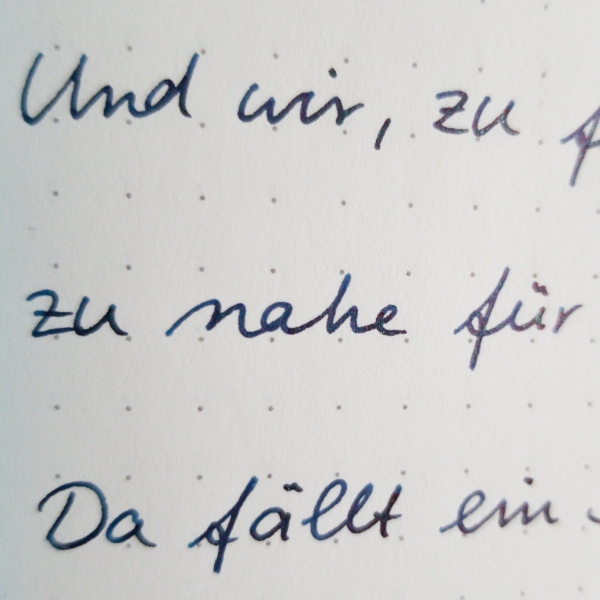 Und wir, zu
zu nahe für
Da fällt ein